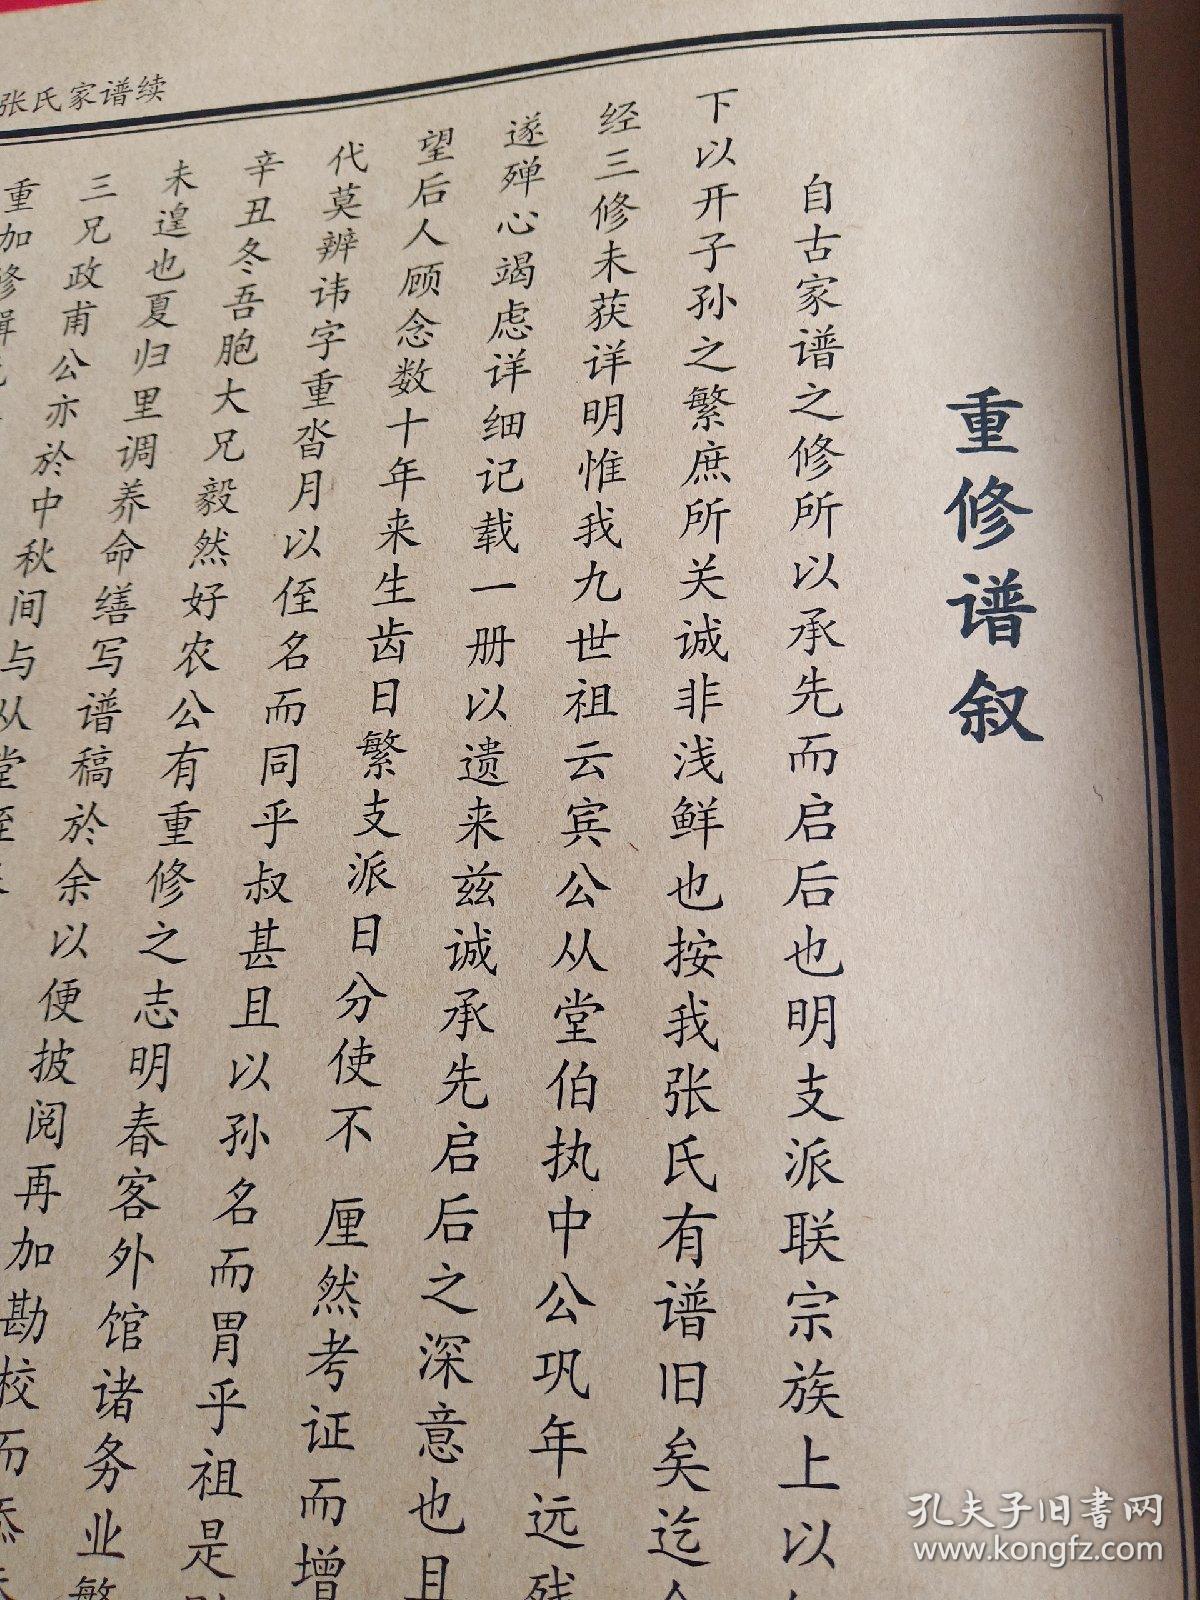 张氏家谱续
重修谱叙
自古家谱之修所以承先而启后也明支派联宗族上以
下以开子孙之繁庶所关诚非浅鲜也按我张氏有谱旧矣迄今
经三修未获详明惟我九世祖云宾公从堂伯执中公巩年远残
遂殚心竭虑详细记载一册以遗来兹诚承先启后之深意也且
望后人顾念数十年来生齿日繁支派日分使不 厘然考证而增
代莫辨讳字重沓月以侄名而同乎叔甚且以孙名而胃乎祖是
辛丑冬吾胞大兄毅然好农公有重修之志明春客外馆诸务业繁
未遑也夏归里调养命缮写谱稿於余以便披阅再加勘校而添
三兄政甫公亦於中秋间与从堂侄
重加修辑
孔夫子旧书网
www.kongfz.com